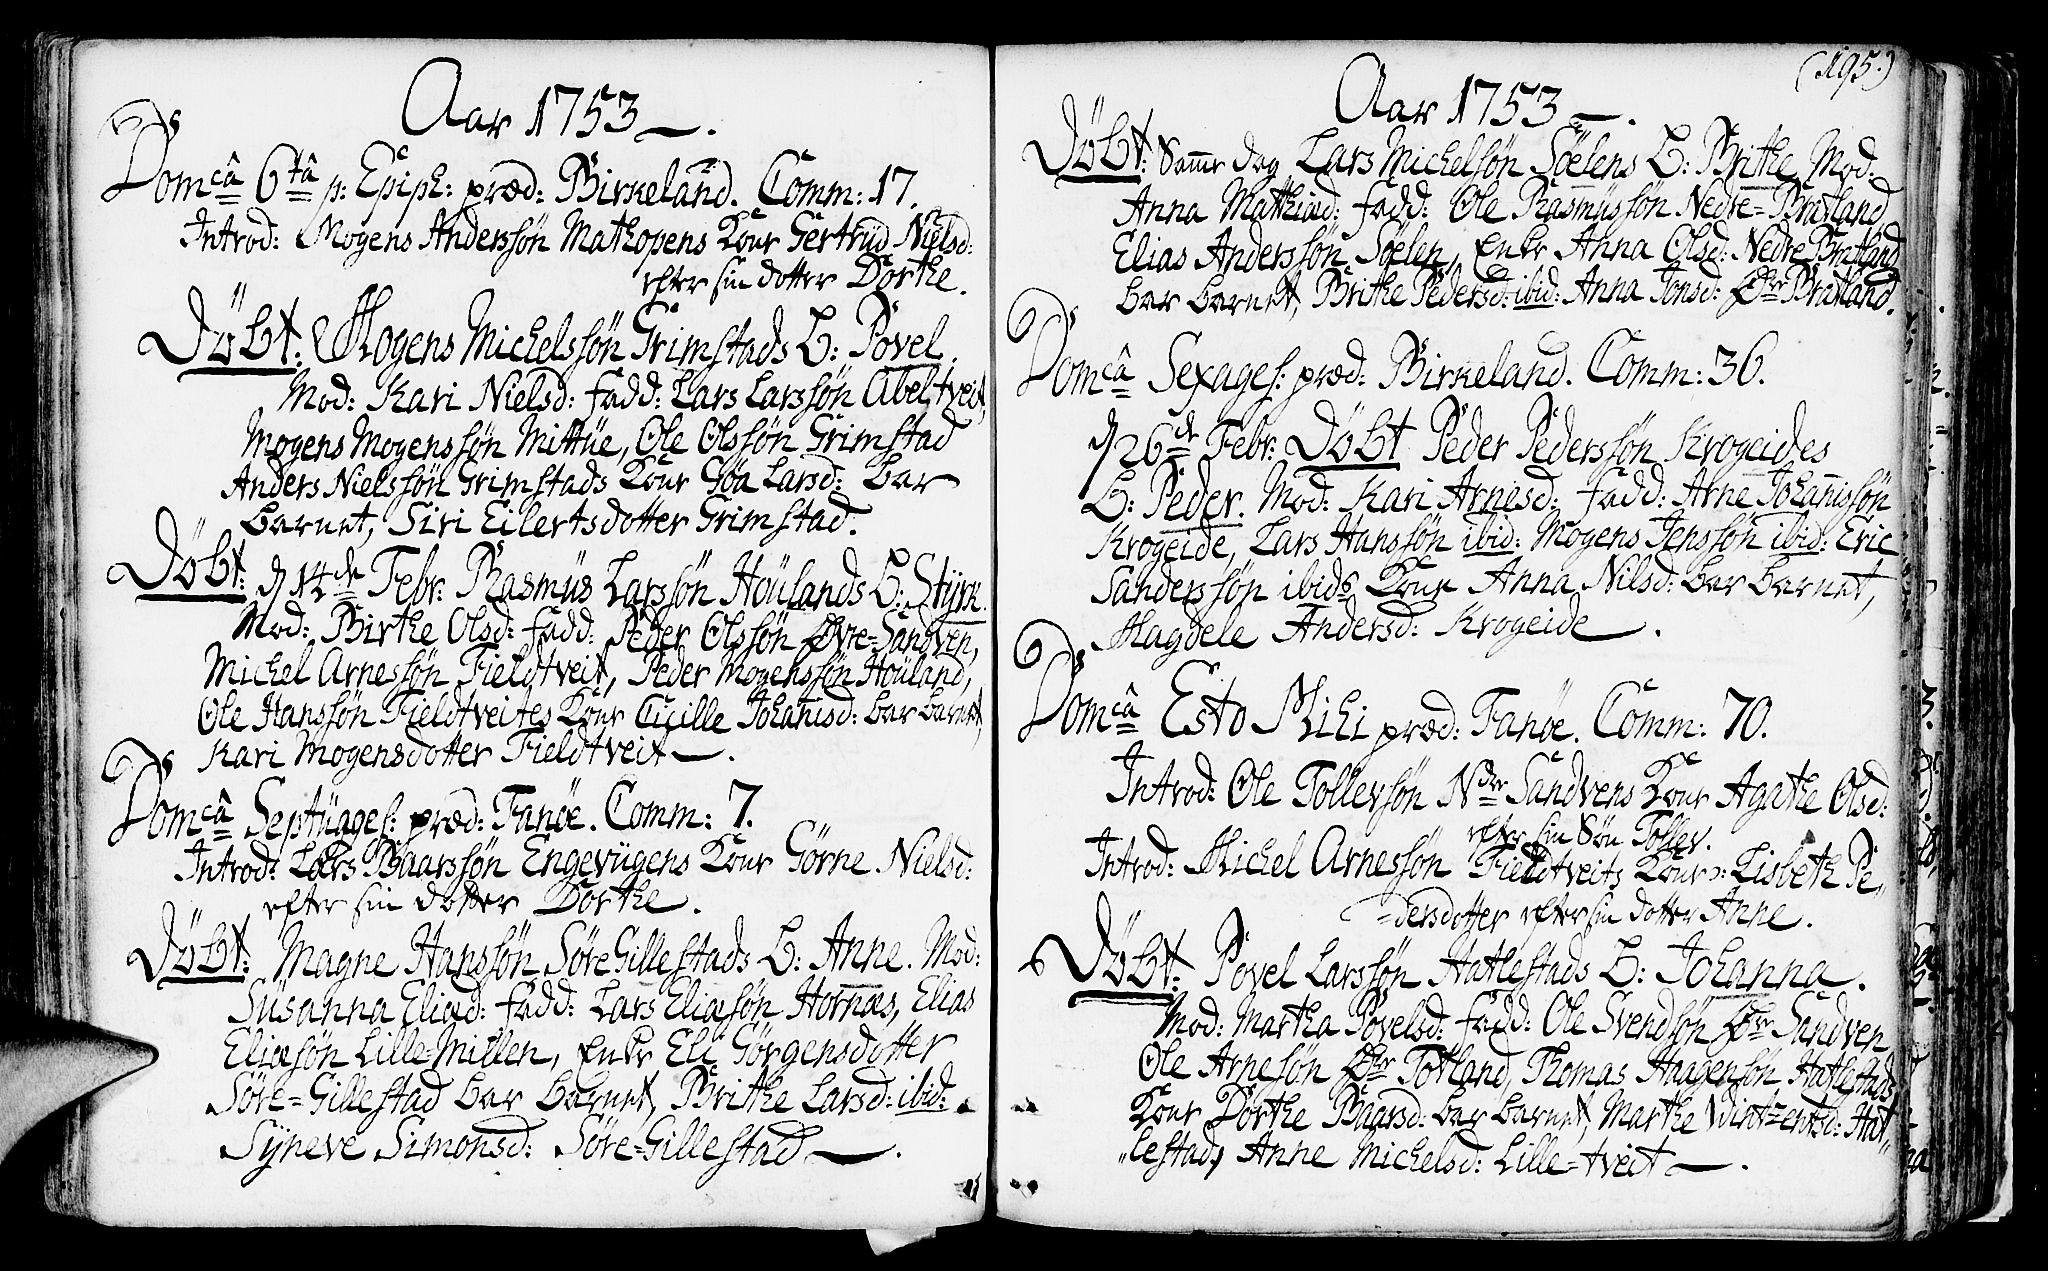 Aar 1753 —.
Domcâ 6tâ p: Epiph: præd: Birkeland. Comm: 17.
Introd: Mogens Anderssön Mathopens Konr Gertrüd Nielsd:
efter sin dotter Dorthe.
Döbt: Mogens Michelssön Grimstads b: Povel.
Mod: Kari Nielsd: fadd: Lars Larssön Abeltveit,
Mogens Mogenssön Mittüe, Ole Olssön Grimstad
Anders Nielssön Grimstads Konr Göa Larsd: bar
barnet, Siri Eilertsdotter Grimstad.
Döbt: d 14de Febr: Rasmüs Larssön Houlands b: Styrk.
Mod: Birthe Olsd: fadd: Peder Olssön Øvre=Sandven,
Michel Arnessön Fieldtveit, Peder Mogenssön Houland,
Ole Hanssön Fieldtveites Konr Cicille Johanisd: bar barnet,
Kari Mogensdotter Fieldtveit —.
Domcâ Septüages: præd: Fanöe. Comm: 7.
Introd: Lars Baarssön Engevügens Konr Görne Nielsd:
efter sin dotter Dorthe.
Döbt: Magne Hanssön SöreGillestads b: Anne. Mod:
Süsanna Eliæd: fadd: Lars Eliæsön Hornæs, Elias
Eliæsön Lille=Millen, Enke Eli Görgensdotter
Söre=Gillestad bar barnet, Brithe Larsd: ibid:
Syneve Simonsd: Söre=Gillestad —.
(195.)
Aar 1753 —.
Döbt: Samme dag Lars Michelsön Söelens b: Brithe, Mod:
Anna Mathiæd: fadd: Ole Rasmüssön Nedre=Bratland
Elias Anderssön Söelen, Enke Anna Olsd: Nedre Bratland
bar barnet, Brithe Pedersd: ibid: Anna Jonsd: Øfre Bratland.
Domcâ Sexages: præd: Birkeland. Comm: 36.
d 26de Febr: Döbt Peder Pederssön Krogeides
b: Peder. Mod: Kari Arnesd: fadd: Arne Johanissön
Krogeide, Lars Hanssön ibid: Mogens Jenssön ibid: Eric
Sanderssön ibids Konr Anna Nilsd: bar barnet,
Magdele Andersd: Krogeide —.
Domcâ Esto Mihi præd: Fanöe. Comm: 70.
Introd: Ole Tollevsön Ndre Sandvens Konr Agathe Olsd:
efter sin Sön Tollev.
Introd: Michel Arnessön Fieldtveits Konr: Lisbeth Pe„
=dersdotter efter sin dotter Anne.
Döbt: Povel Larssön Hatlestads b: Johanna.
Mod: Martha Povelsd: fadd: Ole Svendsön Øfre Sandven
Ole Arnesön Øfre Totland, Thomas Haagensön Hatlestads
Konr Dorthe Baarsd: bar barnet, Marthe Vintzentsd: Hat„
„lestad, Anne Michelsd: Lille=tveit —.